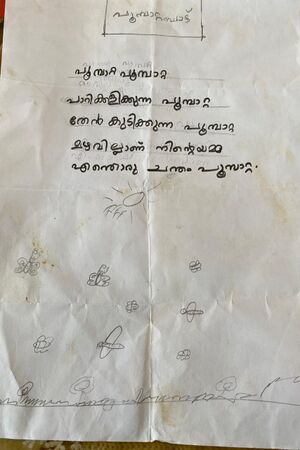 പൂമ്പാറ്റപ്പാട്ട്
പൂമ്പാറ്റ പൂമ്പാറ്റ
പാറിക്കളിക്കുന്ന പൂമ്പാറ്റ
തേൻ കുടിക്കുന്ന പൂമ്പാറ്റ
മഴവില്ലാണ് നിൻ്റെയമ്മ
എന്തൊരു ചന്തം പൂമ്പാറ്റ.